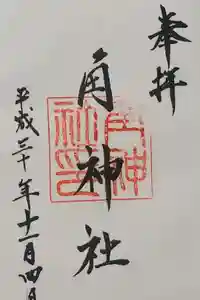 奉拝
角神社
平成三十年十一月四日